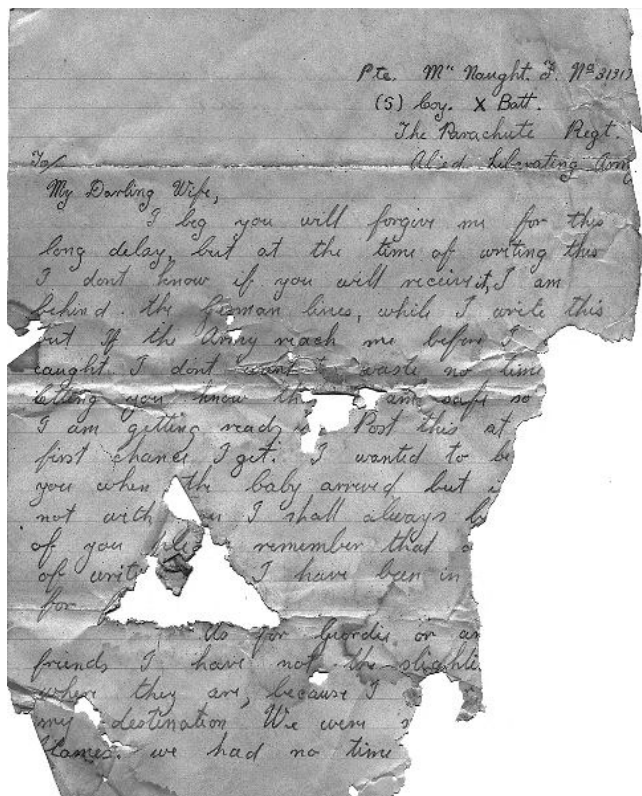 Pte. Mc Naught. J. No 3131
(S) Coy. X Batt.
The Parachute Regt.
Alied Librating Arm
To/
My Darling Wife,
I beg you will forgive me for this
long delay, but at the time of writing this
I dont know if you will receive it, I am
behind the German lines, while I write this
but If the Army reach me before I
caught I dont want to waste no time
letting you know th am safe so
I am getting ready Post this at
first chance I get. I wanted to be
you when the baby arrived but
not with I shall always b
of you remember that
of I have been in
for
As for Geordie or an
friends I have not the slightle
where they are, because I
my destination We were
flames. we had no time